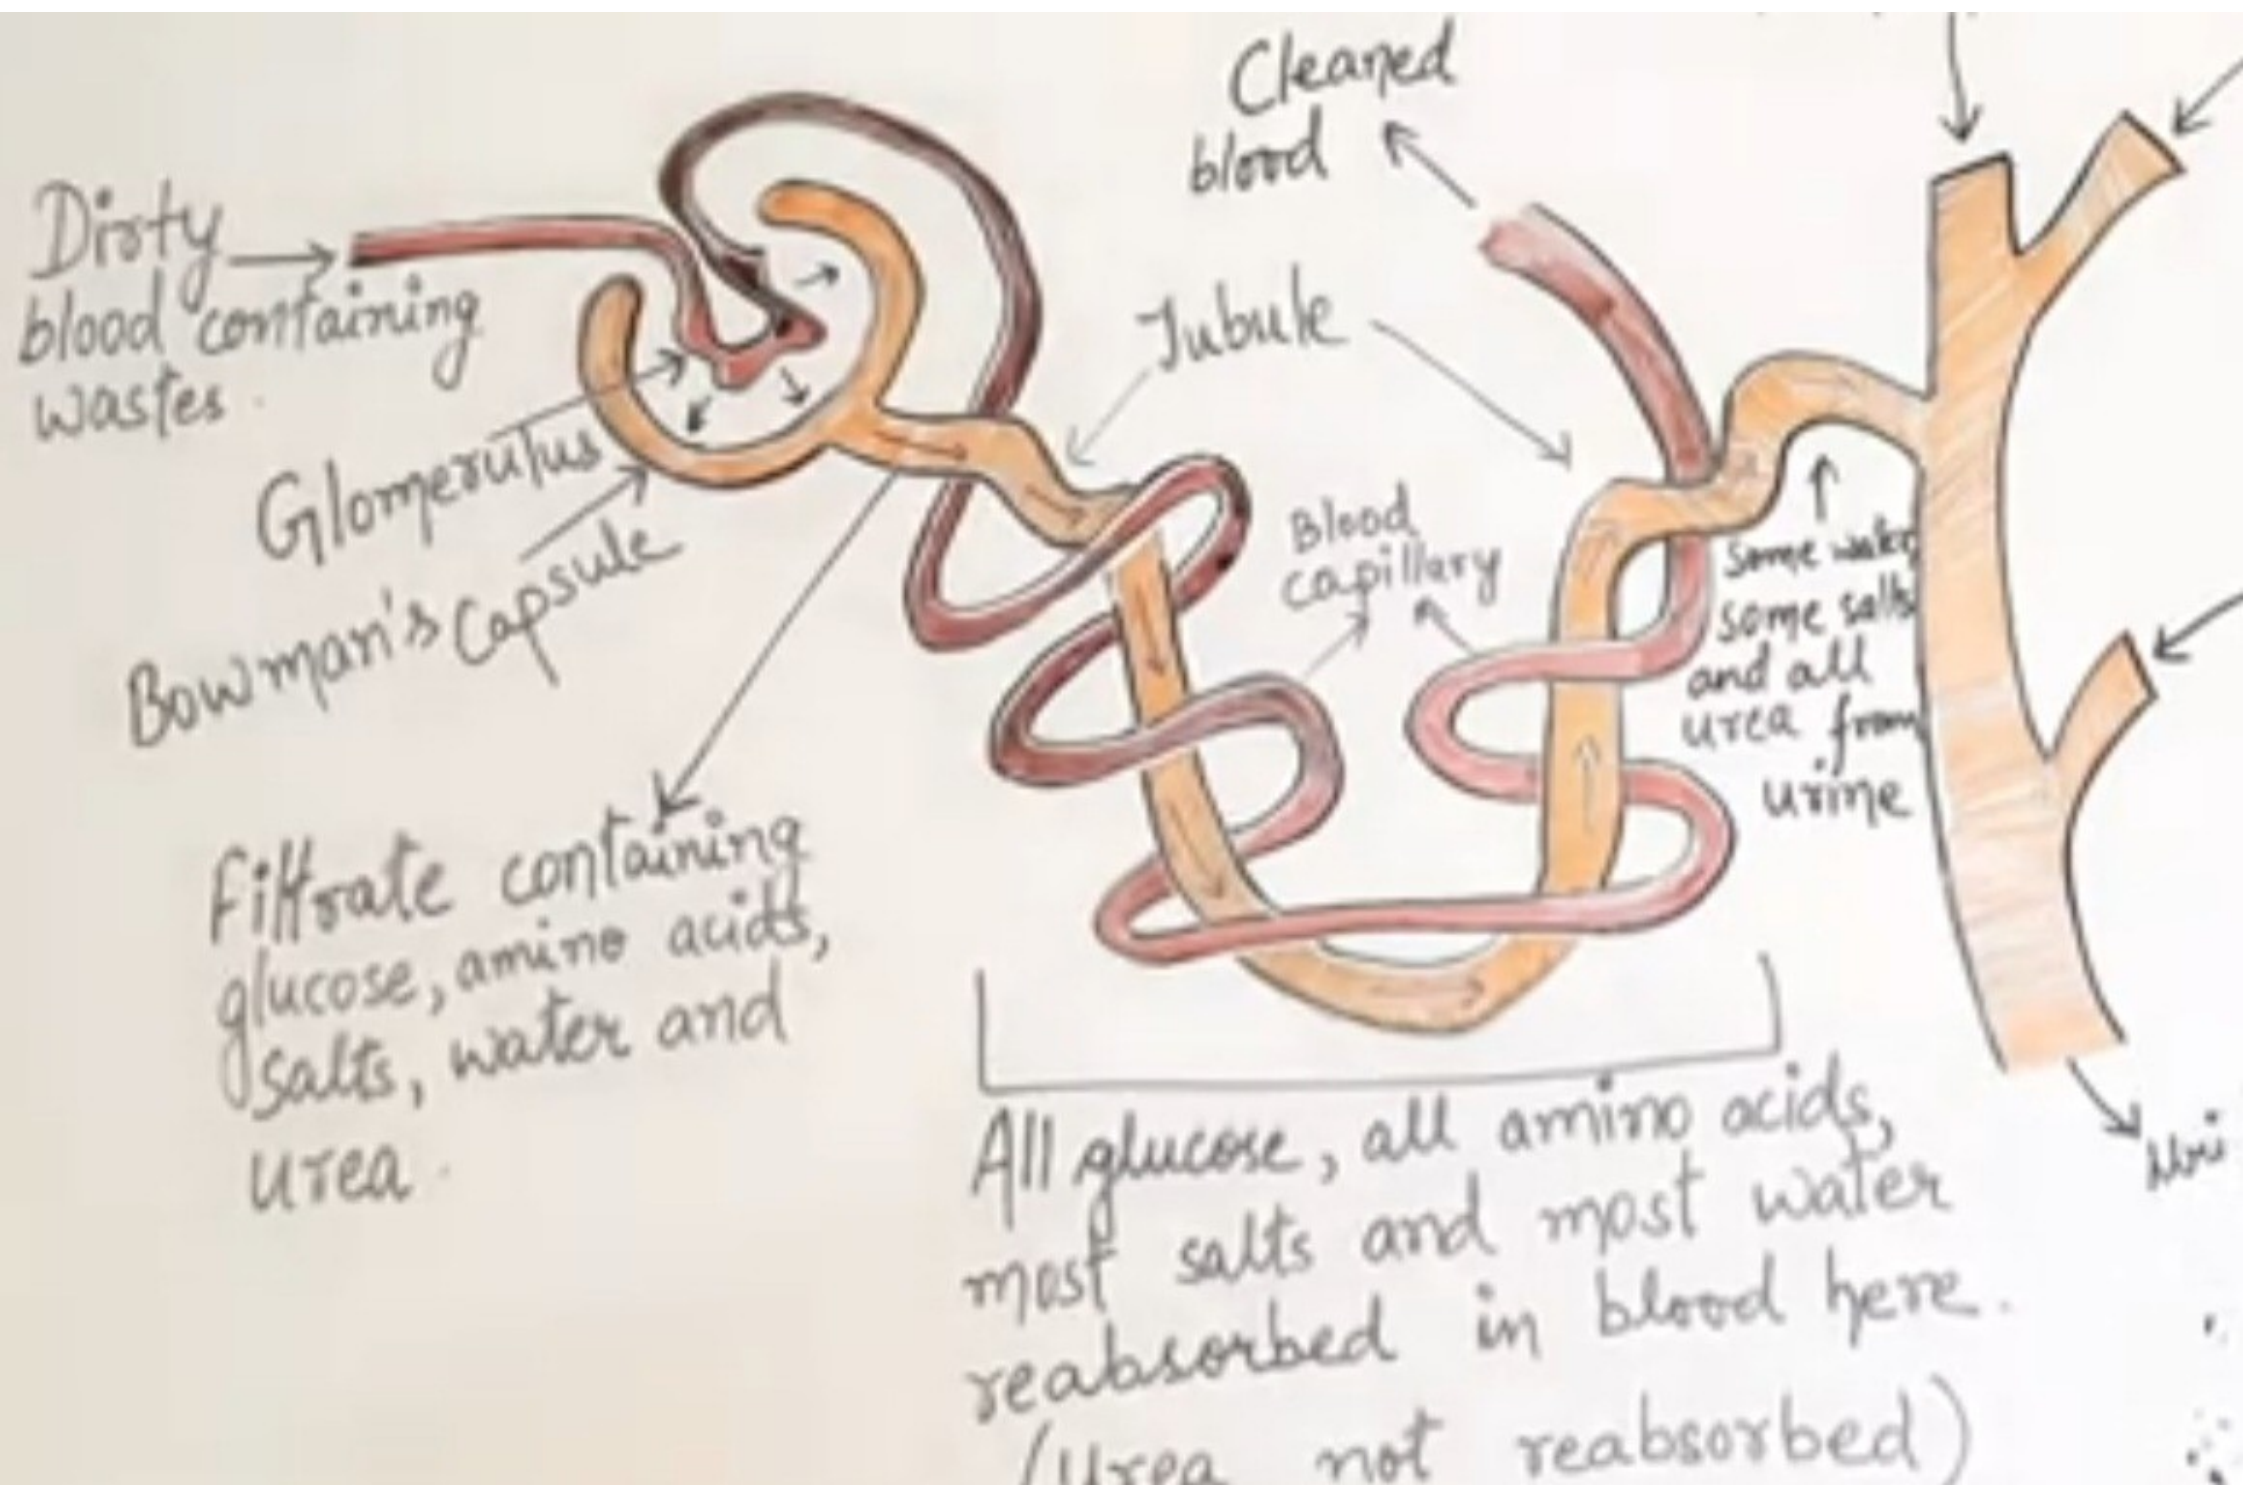 Cleaned
blood
Dirty
blood containing
wastes.
Tubule
Glomerulus
Bowman's Capsule
Blood
capillary
Some water,
some salts
and all
urea from
urine
Filtrate containing
glucose, amino acids,
salts, water and
urea.
All glucose, all amino acids,
most salts and most water
reabsorbed in blood here.
(Urea not reabsorbed)
Uri